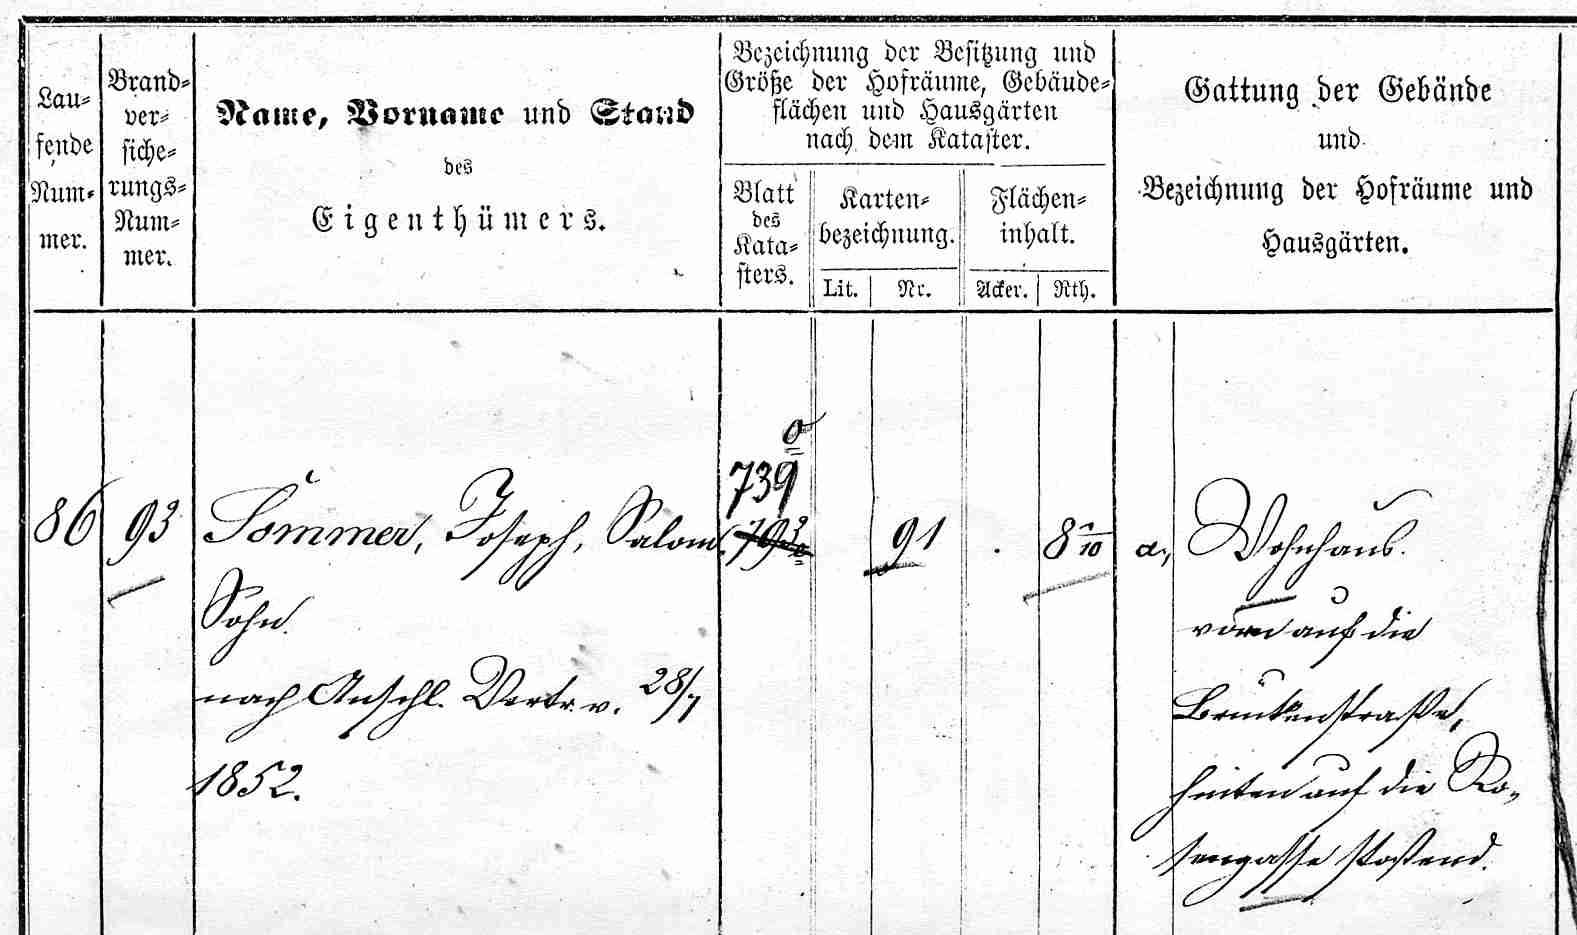 Lau-
fende
Num-
mer.
Brand-
ver-
siche-
rungs-
Num-
mer.
Name, Vorname und Stand
des
Eigenthümers.
Bezeichnung der Besitzung und
Größe der Hofräume, Gebäude-
flächen und Hausgärten
nach dem Kataster.
Blatt
des
Kata-
sters.
Karten-
bezeichnung.
Lit.
Nr.
Flächen-
inhalt.
Acker.
Rth.
Gattung der Gebände
und
Bezeichnung der Hofräume und
Hausgärten.
739
86 93 Sommer, Joseph, Salom. 793 91 . 8 1/10 a, Wohnhaus.
Sohn.
nach Anschl. Vertr. v. 28/7
1852.
vorn auf die
Brückenstraße,
hinten auf die Ro-
sengasse stoßend.